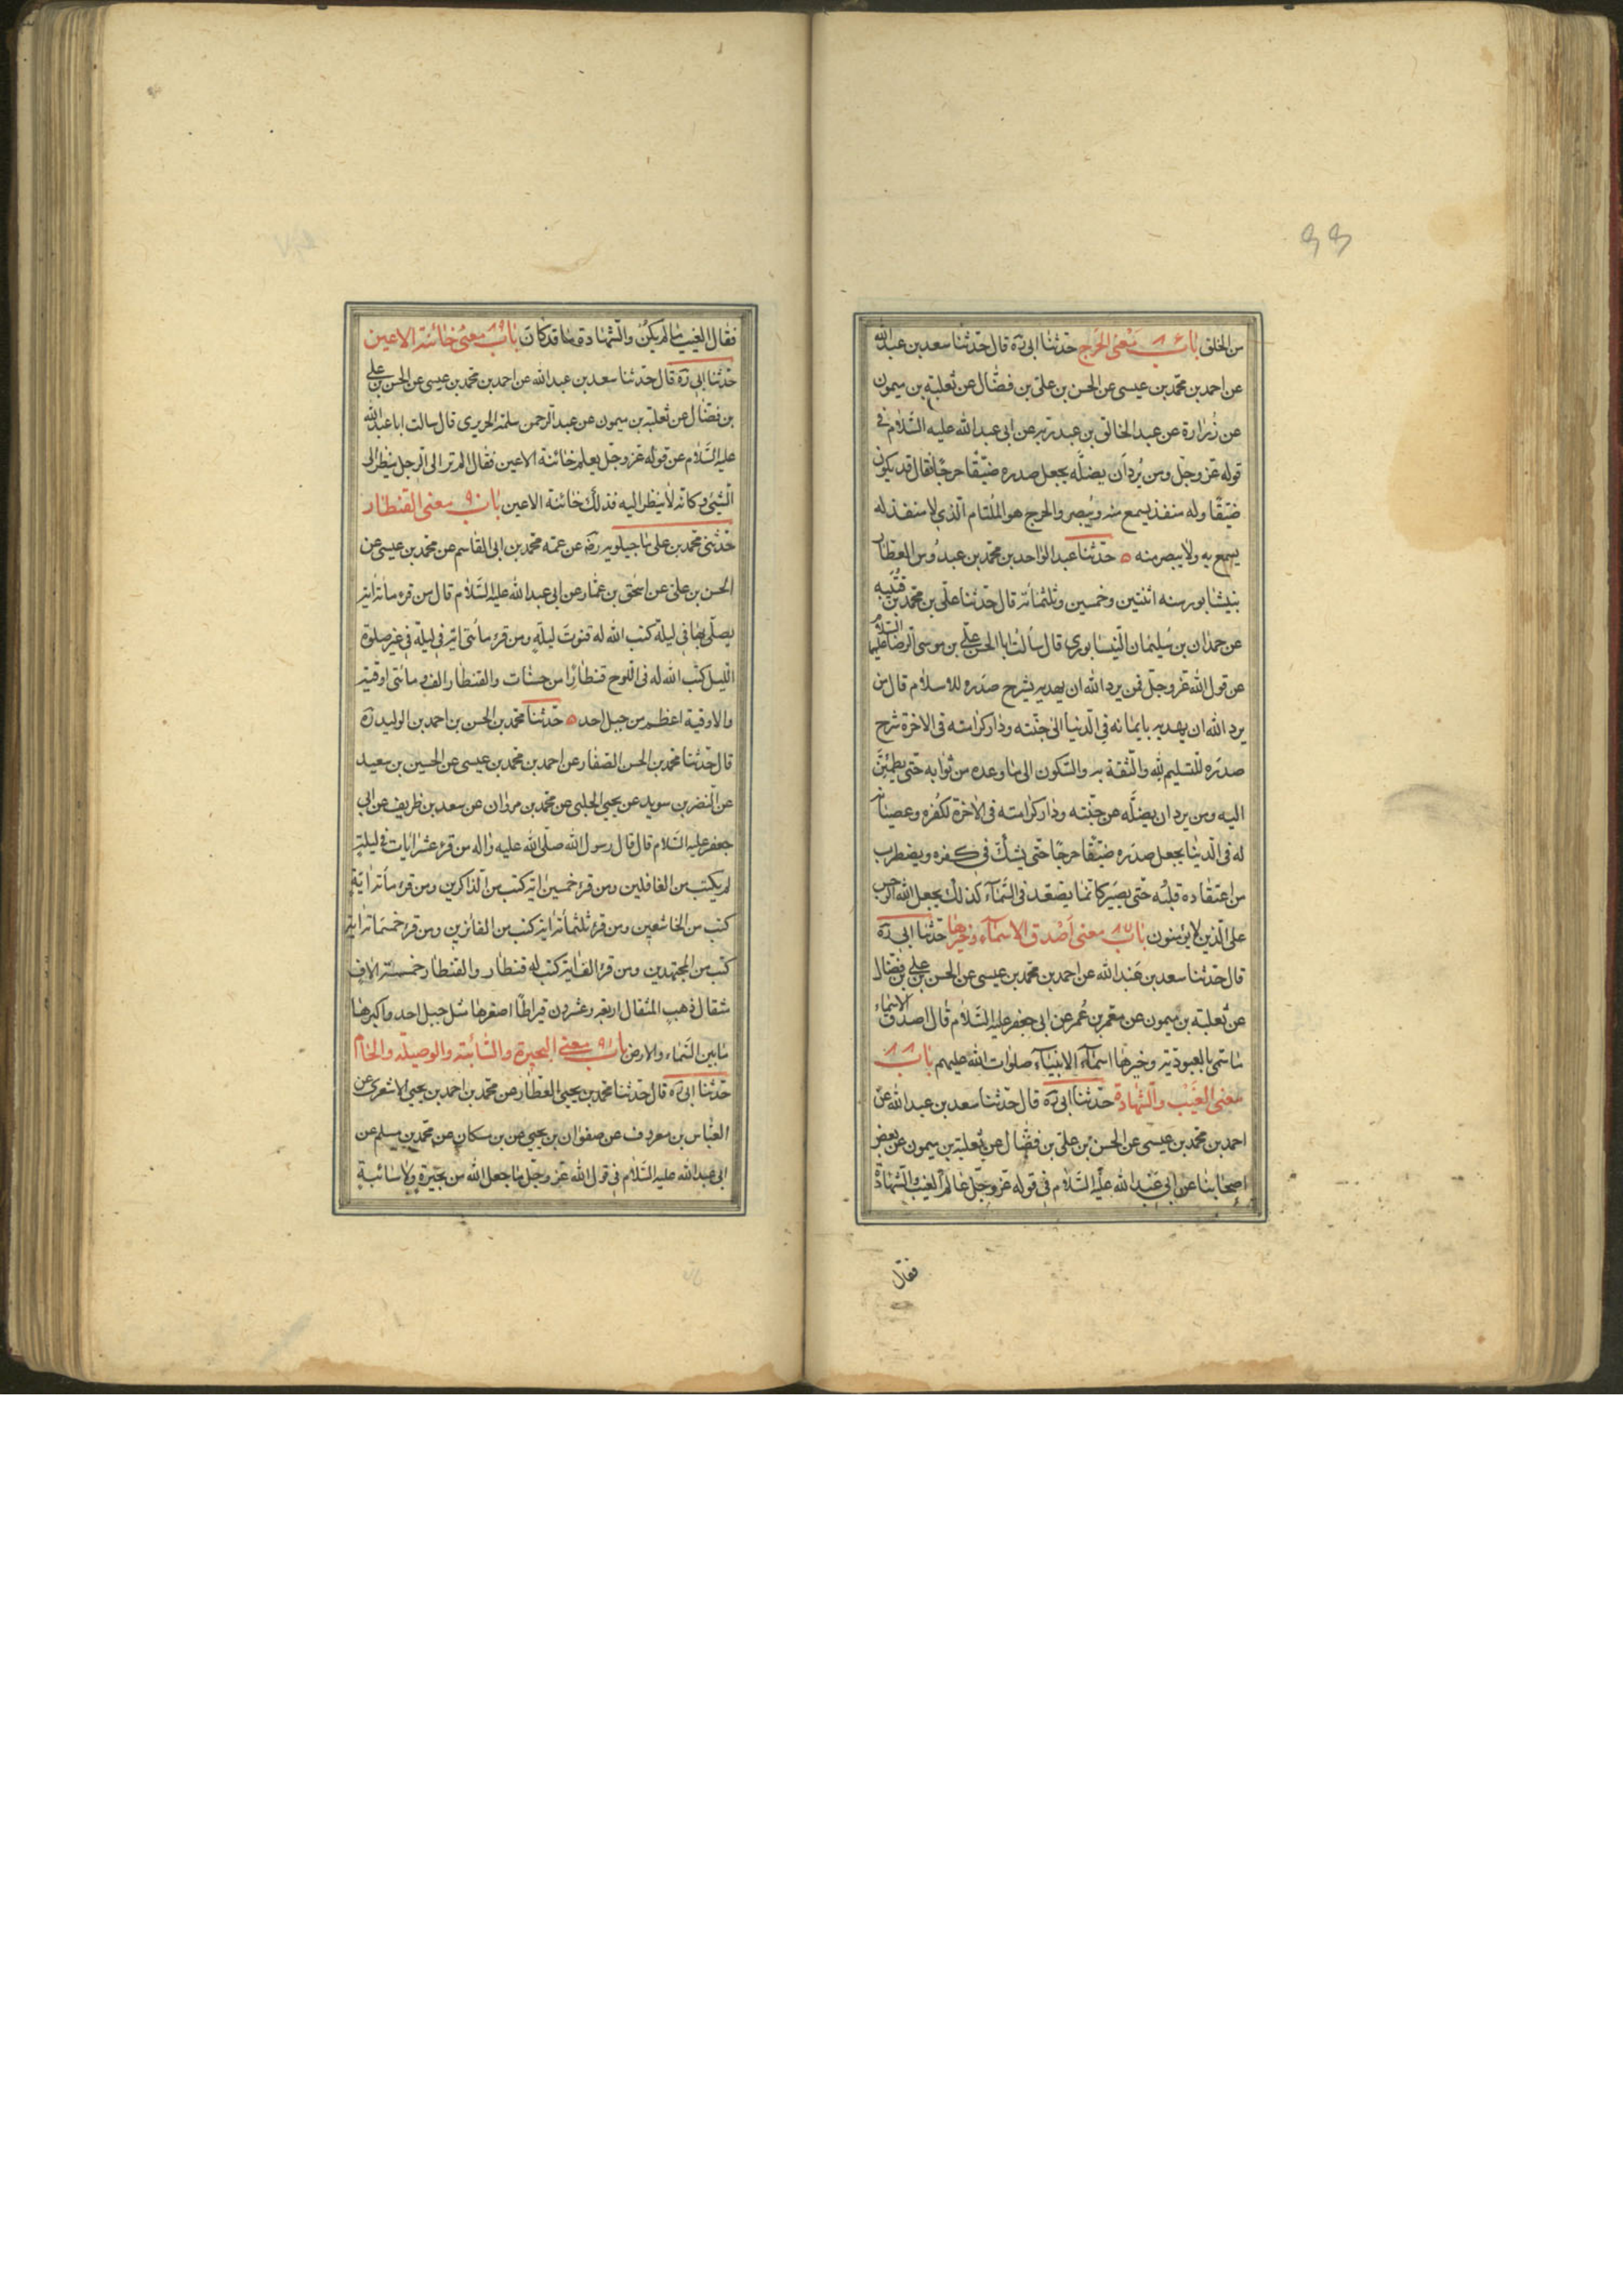 من الخلق باب ٨٦ معنى الحرج حدثنا ابى ره قال حدثنا سعد بن عبدالله
عن احمد بن محمد بن عيسى عن الحسن بن على بن فضال عن ثعلبة بن ميمون
عن زرارة عن عبد الخالق بن عبد ربه عن ابى عبد الله عليه السلام فى
قوله عز وجل ومن يرد ان يضله يجعل صدره ضيقا حرجا فقال قد يكون
ضيقا وله منفذ يسمع منه ويبصر والحرج هو الملتام الذى لا منفذ له
يسمع به ولا يبصر منه ه حدثنا عبد الواحد بن محمد بن عبدوس العطار
بنيشابور سنه اثنتين وخمسين وثلثمائه قال حدثنا على بن محمد بن قتيبه
عن حمدان بن سليمان النيسابورى قال سالت ابا الحسن على بن موسى الرضا عليهما السلام
عن قول الله عز وجل فمن يرد الله ان يهديه يشرح صدره للاسلام قال من
يرد الله ان يهديه بايمانه فى الدنيا الى جنته ودار كرامته فى الاخرة شرح
صدره للتسليم لله والثقة به والسكون الى ما وعده من ثوابه حتى يطمئن
اليه ومن يرد ان يضله عن جنته ودار كرامته فى الاخرة لكفره وعصيانه
له فى الدنيا يجعل صدره ضيقا حرجا حتى يشك فى كفره ويضطرب
من اعتقاده قلبه حتى يصير كانما يصعد فى السماء كذلك يجعل الله الرجس
على الذين لا يؤمنون باب ٨٧ معنى اصدق الاسماء وخيرها حدثنا ابى ره
قال حدثنا سعد بن عبد الله عن احمد بن محمد بن عيسى عن الحسن بن على بن فضال
عن ثعلبة بن ميمون عن معمر بن عمر عن ابى جعفر عليه السلام قال اصدق الاسماء
ما سمى بالعبوديه وخيرها اسماء الانبياء صلوات الله عليهم باب ٨٨
معنى الغيب والشهادة حدثنا ابى ره قال حدثنا سعد بن عبد الله عن
احمد بن محمد بن عيسى عن الحسن بن على بن فضال عن ثعلبة بن ميمون عن بعض
اصحابنا عن ابى عبد الله عليه السلام فى قوله عز وجل عالم الغيب والشهادة
فقال
فقال الغيب ما لم يكن والشهادة ما قد كان باب ٨٩ معنى خائنة الاعين
حدثنا ابى ره قال حدثنا سعد بن عبد الله عن احمد بن محمد بن عيسى عن الحسن بن على
بن فضال عن ثعلبه بن ميمون عن عبد الرحمن سلمة الحريرى قال سالت ابا عبد الله
عليه السلام عن قوله عز وجل يعلم خائنة الاعين فقال الم تر الى الرجل ينظر الى
الشيئ وكانه لا ينظر اليه فذلك خائنة الاعين باب ٩٠ معنى القنطار
حدثنى محمد بن على ماجيلويه ره عن عمه محمد بن ابى القاسم عن محمد بن عيسى عن
الحسن بن على عن اسحق بن عمار عن ابى عبد الله عليه السلام قال من قرء مائة اية
يصلى بها فى ليلة كتب الله له قنوت ليلة ومن قرء مائتى اية فى ليلة فى غير صلوة
الليل كتب الله له فى اللوح قنطارا من حسنات والقنطار الف ومائتى اوقية
والاوقية اعظم من جبل احد ه حدثنا محمد بن الحسن بن احمد بن الوليد ره
قال حدثنا محمد بن الحسن الصفار عن احمد بن محمد بن عيسى عن الحسين بن سعيد
عن النضر بن سويد عن يحيى الحلبى عن محمد بن مروان عن سعد بن ظريف عن ابى
جعفر عليه السلام قال قال رسول الله صلى الله عليه واله من قرء عشر ايات فى ليلة
لم يكتب من الغافلين ومن قرء خمسين اية كتب من الذاكرين ومن قرء مائة اية
كتب من الخاشعين ومن قرء ثلثمائة اية كتب من الفائزين ومن قرء خمسمائة اية
كتب من المجتهدين ومن قرء الف اية كتب له قنطار والقنطار خمسة الاف
مثقال ذهب المثقال اربعة وعشرون قيراطا اصغرها مثل جبل احد واكبرها
ما بين السماء والارض باب ٩١ معنى البحيرة والسائبة والوصيلة والحام
حدثنا ابى ره قال حدثنا محمد بن يحيى العطار عن محمد بن احمد بن يحيى الاشعرى عن
العباس بن معروف عن صفوان بن يحيى عن بن مسكان عن محمد بن مسلم عن
ابى عبد الله عليه السلام فى قول الله عز وجل ما جعل الله من بحيرة ولا سائبة